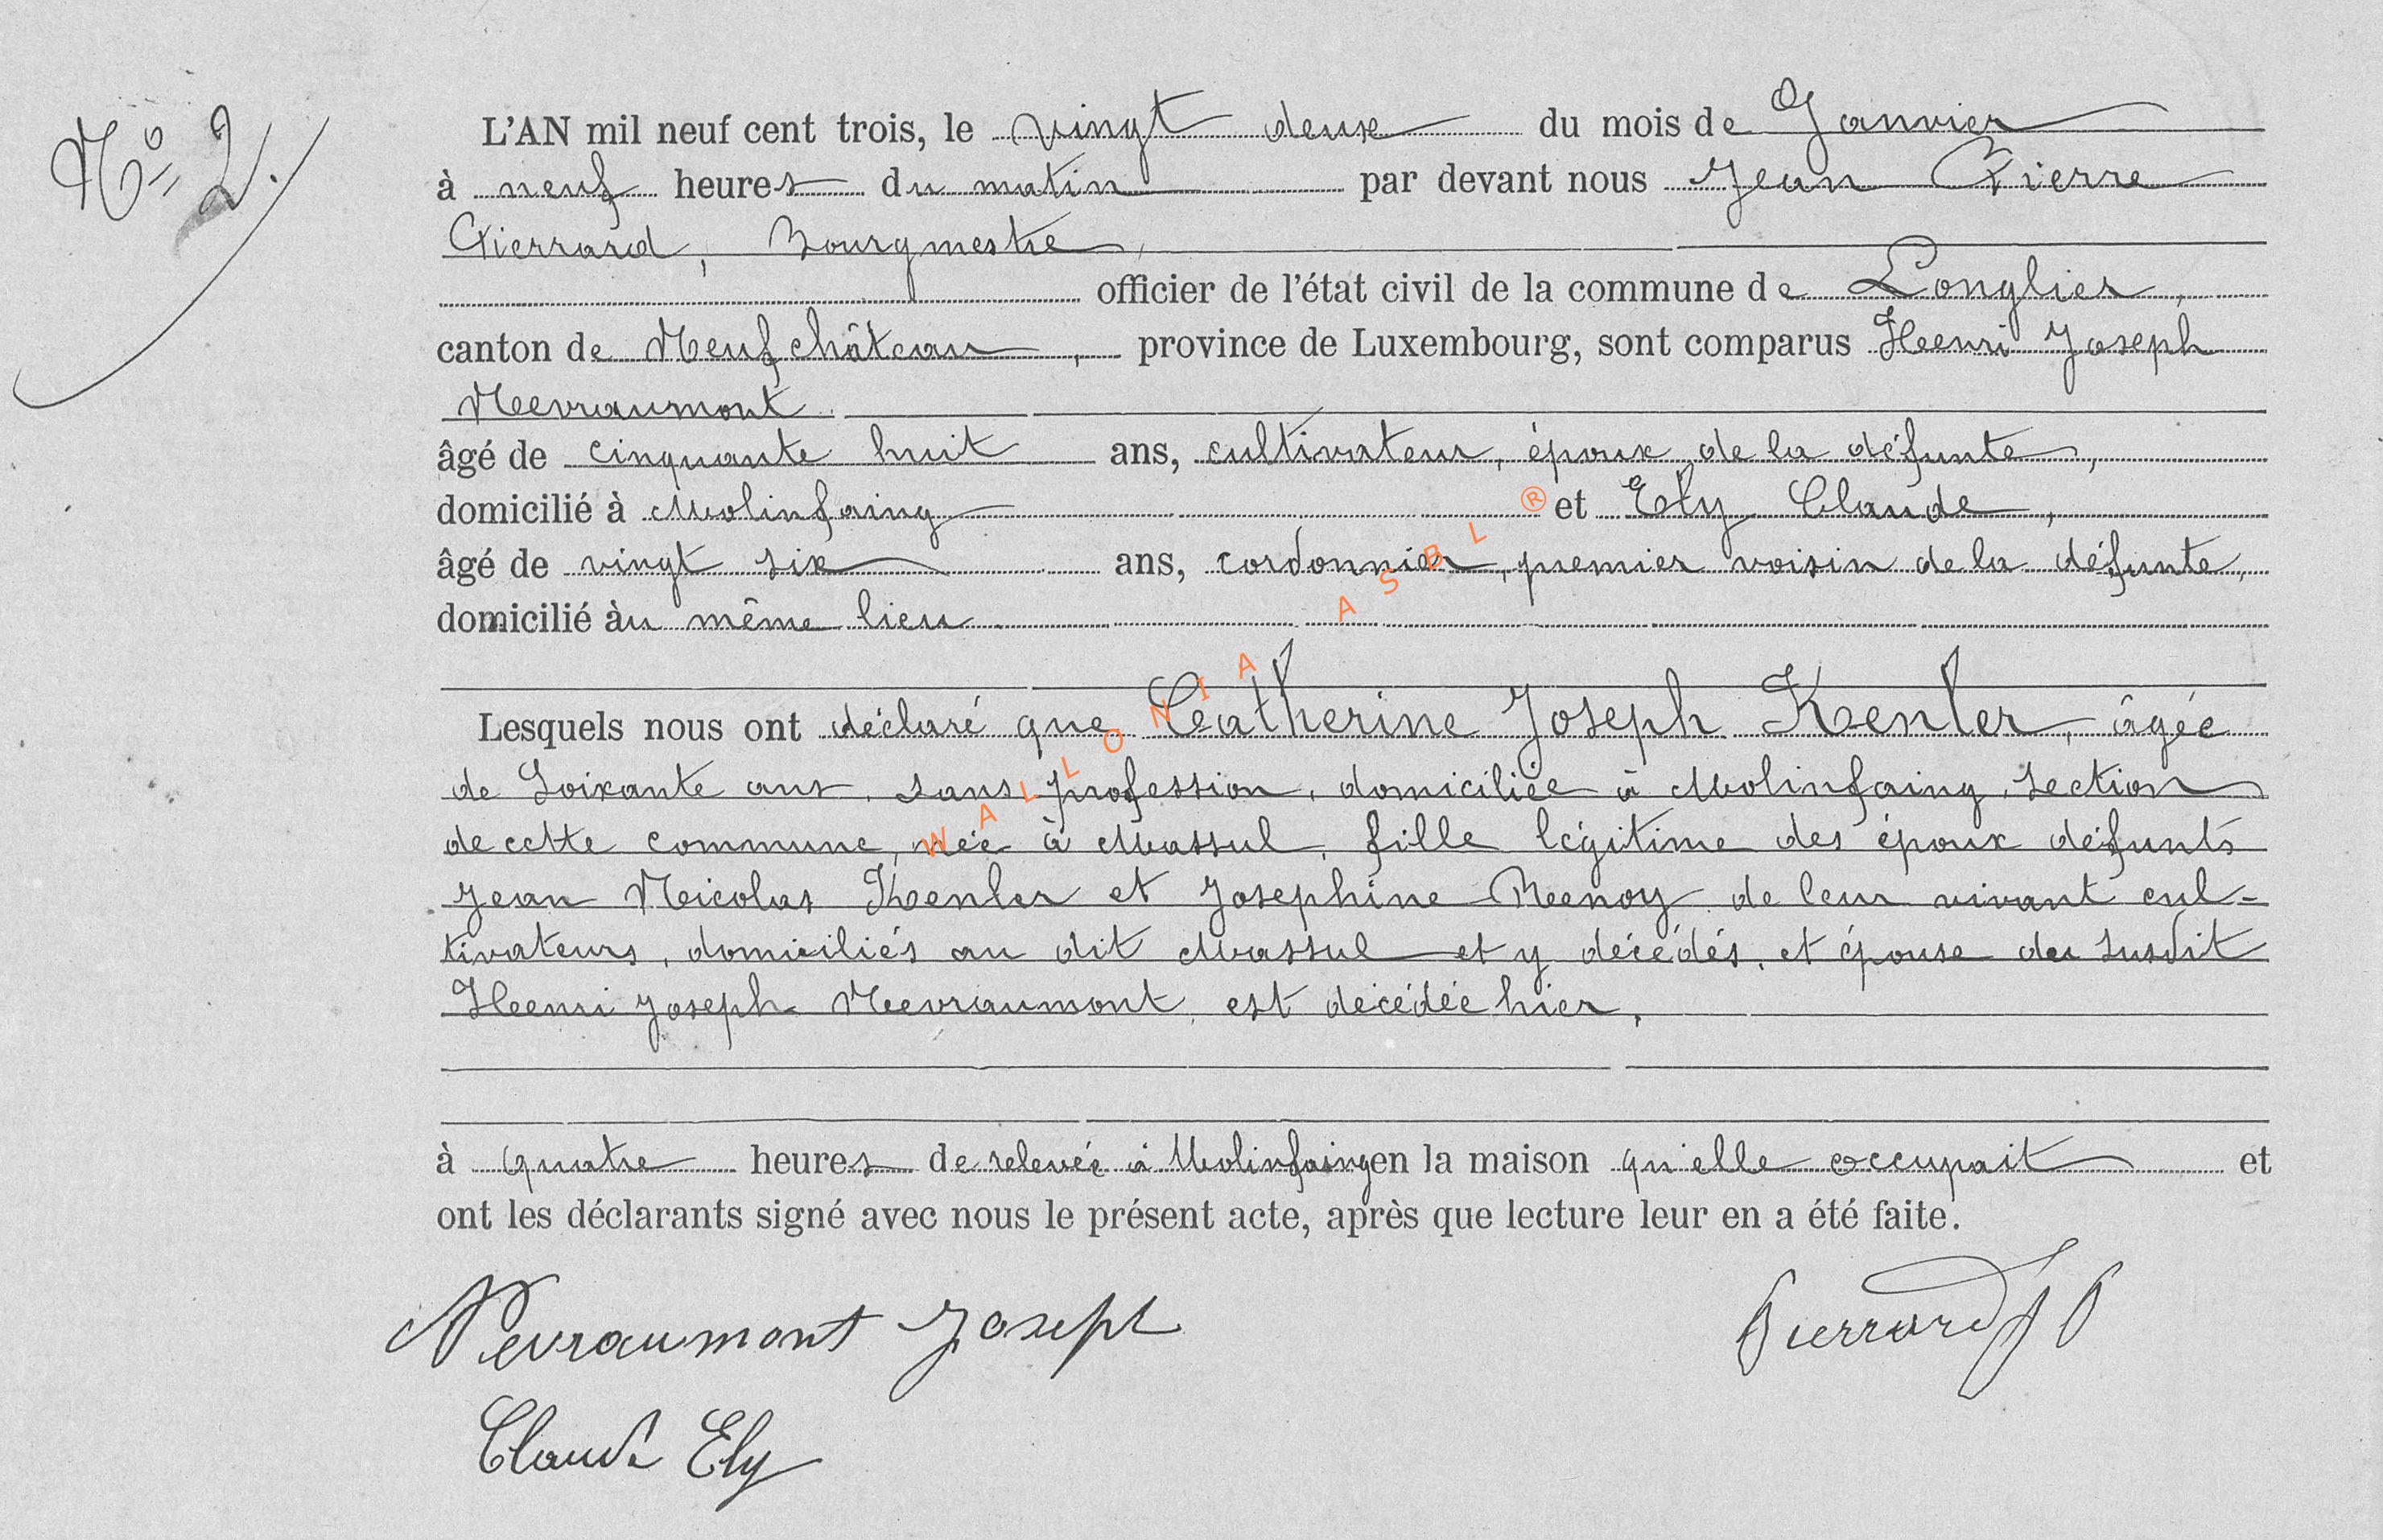 N° 2.
L'AN mil neuf cent trois, le vingt deux du mois de Janvier
à neuf heures du matin par devant nous Jean Pierre
Pierrard, Bourgmestre,
officier de l'état civil de la commune de Longlier,
canton de Neufchâteau, province de Luxembourg, sont comparus Henri Joseph
Nevraumont
âgé de cinquante huit ans, cultivateur, époux de la défunte,
domicilié à Molinfaing et Ely Claude,
âgé de vingt six ans, cordonnier, premier voisin de la défunte,
domicilié àu même lieu
Lesquels nous ont déclaré que Catherine Joseph Kenler, âgée
de Soixante ans, sans profession, domiciliée à Molinfaing, section
de cette commune, née à Massul, fille légitime des époux défunts
Jean Nicolas Kenler et Josephine Renoy de leur vivant cul-
tivateurs, domiciliés au dit Massul et y décédés, et épouse du susdit
Henri Joseph Nevraumont, est décédée hier,
à quatre heures de relevée à Molinfaing en la maison qu'elle occupait et
ont les déclarants signé avec nous le présent acte, après que lecture leur en a été faite.
Nevraumont Joseph
Pierrard J P
Claude Ely
WALLONIA ASBL ®